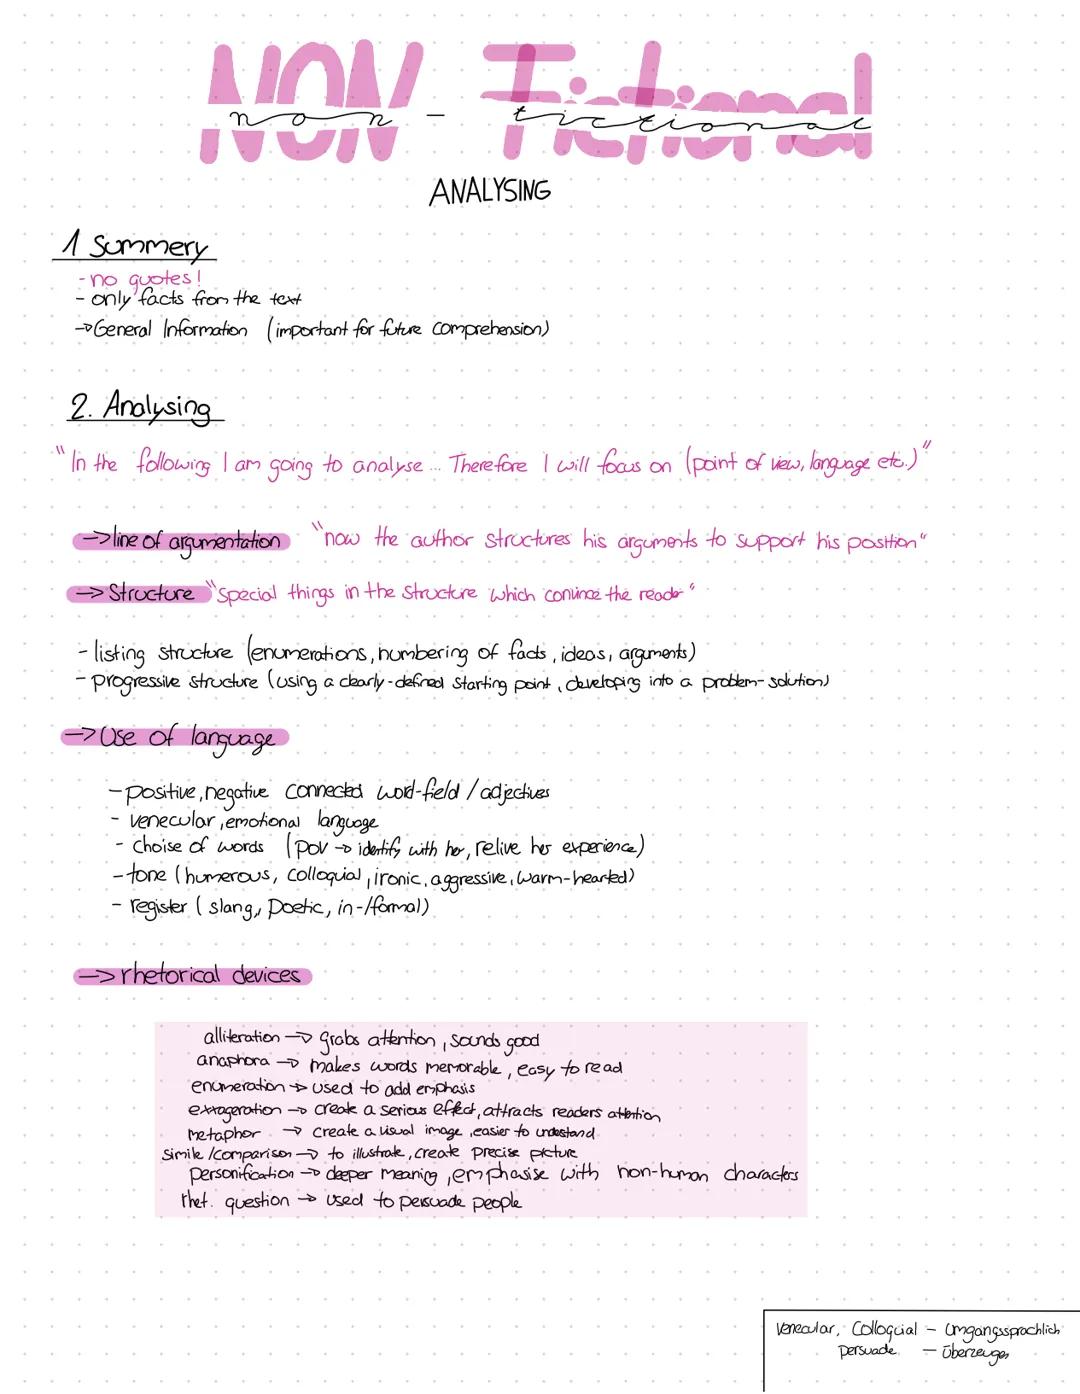 NON - Fictional
non - fictional
ANALYSING
1 Summery
- no quotes!
- only facts from the text
→ General Information (important for future comprehension)
2. Analysing
"In the following I am going to analyse ... Therefore I will focus on (point of view, language etc.)"
→ line of argumentation "now the author structures his arguments to support his position"
→ Structure "special things in the structure which convince the reader"
- listing structure (enumerations, numbering of facts, ideas, arguments)
- progressive structure (using a clearly-defined starting point, developing into a problem-solution)
→ Use of language
- positive, negative connected word-field / adjectives
- venecular, emotional language
- choise of words (pov → identify with her, relive her experience)
- tone (humerous, colloquial, ironic, aggressive, warm-hearted)
- register (slang, Poetic, in-/formal)
→ rhetorical devices
alliteration → grabs attention, sounds good
anaphora → makes words memorable, easy to read
enumeration → used to add emphasis
exxageration → create a serious effect, attracts readers attention
metaphor → create a visual image, easier to understand
simile/comparison → to illustrate, create precise picture
personification → deeper meaning, emphasise with non-human characters
rhet. question → used to persuade people
Venecular, Colloquial - Umgangssprachlich
persuade - überzeugen